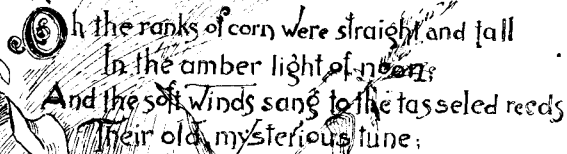 Oh the ranks of corn were straight and tall
In the amber light of noon;
And the soft winds sang to the tasseled reeds
Their old, mysterious tune;